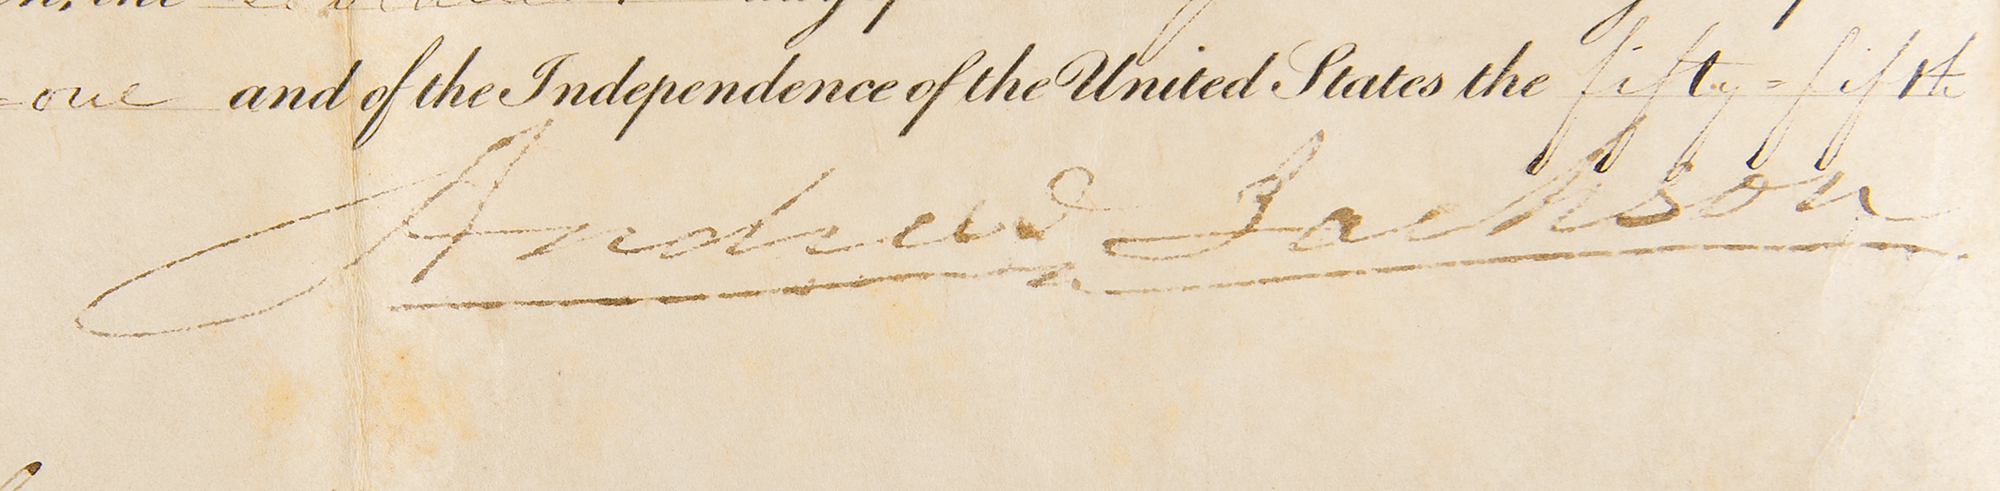 one and of the Independence of the United States the fifty=fifth
Andrew Jackson